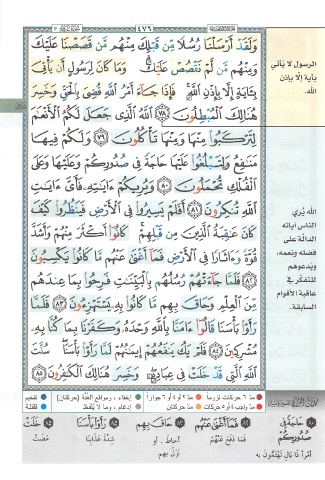 ٤٧٦
وَلَقَدْ أَرْسَلْنَا رُسُلًا مِّن قَبْلِكَ مِنْهُم مَّن قَصَصْنَا عَلَيْكَ
وَمِنْهُم مَّن لَّمْ نَقْصُصْ عَلَيْكَ ۗ وَمَا كَانَ لِرَسُولٍ أَن يَأْتِىَ
بِـَٔايَةٍ إِلَّا بِإِذْنِ ٱللَّهِ ۚ فَإِذَا جَآءَ أَمْرُ ٱللَّهِ قُضِىَ بِٱلْحَقِّ وَخَسِرَ
هُنَالِكَ ٱلْمُبْطِلُونَ ٧٨ ٱللَّهُ ٱلَّذِى جَعَلَ لَكُمُ ٱلْأَنْعَٰمَ
لِتَرْكَبُوا۟ مِنْهَا وَمِنْهَا تَأْكُلُونَ ٧٩ وَلَكُمْ فِيهَا
مَنَٰفِعُ وَلِتَبْلُغُوا۟ عَلَيْهَا حَاجَةً فِى صُدُورِكُمْ وَعَلَيْهَا وَعَلَى
ٱلْفُلْكِ تُحْمَلُونَ ٨٠ وَيُرِيكُمْ ءَايَٰتِهِۦ فَأَىَّ ءَايَٰتِ
ٱللَّهِ تُنكِرُونَ ٨١ أَفَلَمْ يَسِيرُوا۟ فِى ٱلْأَرْضِ فَيَنظُرُوا۟ كَيْفَ
كَانَ عَٰقِبَةُ ٱلَّذِينَ مِن قَبْلِهِمْ ۚ كَانُوٓا۟ أَكْثَرَ مِنْهُمْ وَأَشَدَّ
قُوَّةً وَءَاثَارًا فِى ٱلْأَرْضِ فَمَآ أَغْنَىٰ عَنْهُم مَّا كَانُوا۟ يَكْسِبُونَ
٨٢ فَلَمَّا جَآءَتْهُمْ رُسُلُهُم بِٱلْبَيِّنَٰتِ فَرِحُوا۟ بِمَا عِندَهُم
مِّنَ ٱلْعِلْمِ وَحَاقَ بِهِم مَّا كَانُوا۟ بِهِۦ يَسْتَهْزِءُونَ ٨٣ فَلَمَّا
رَأَوْا۟ بَأْسَنَا قَالُوٓا۟ ءَامَنَّا بِٱللَّهِ وَحْدَهُۥ وَكَفَرْنَا بِمَا كُنَّا بِهِۦ
مُشْرِكِينَ ٨٤ فَلَمْ يَكُ يَنفَعُهُمْ إِيمَٰنُهُمْ لَمَّا رَأَوْا۟ بَأْسَنَا ۖ سُنَّتَ
ٱللَّهِ ٱلَّتِى قَدْ خَلَتْ فِى عِبَادِهِۦ ۖ وَخَسِرَ هُنَالِكَ ٱلْكَٰفِرُونَ ٨٥
الرسول لا يأتي
بآية إلا بإذن
الله.
الله يُري
الناس آياته
الدالة على
فضله ونعمه،
ويدعوهم
للتفكر في
عاقبة الأقوام
السابقة.
مد ٦ حركات لزوماً مد ٢ أو ٤ أو ٦ جوازاً إخفاء، ومواقع الغنّة (حركتان) تفخيم
مد واجب ٤ أو ٥ حركات مد حركتان إدغام، وما لا يُلفظ قلقلة
حَاجَةً فِي صُدُورِكُمْ
فَمَا أَغْنَى عَنْهُمْ
فما دفع عنهم
حَاقَ بِهِم
أحاط. أو
نزل بهم
رَأَوْا بَأْسَنَا
شدّة عذابنا
خَلَتْ
مضت